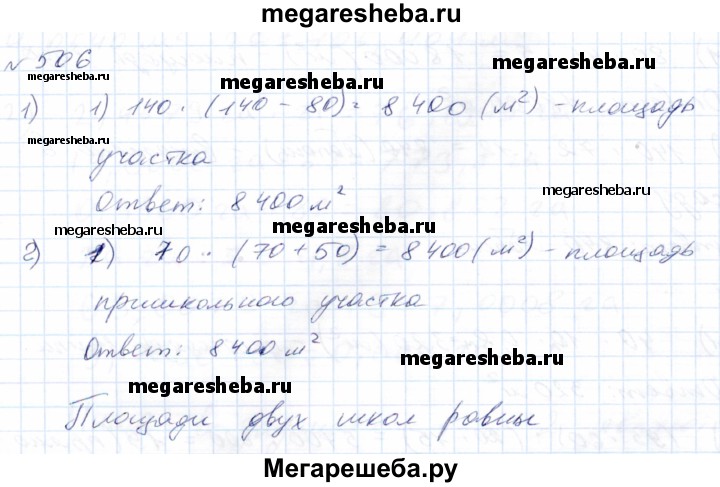 megaresheba.ru
№ 506
megaresheba.ru
megaresheba.ru
1) 1) 140 · (140 - 80) = 8 400 (м²) - площадь
megaresheba.ru
участка
megaresheba.ru
Ответ: 8 400 м²
megaresheba.ru
megaresheba.ru
2) 1) 70 · (70 + 50) = 8400 (м²) - площадь
пришкольного участка
Ответ: 8 400 м²
megaresheba.ru
megaresheba.ru
Площади двух школ равны
Мегарешеба.ру